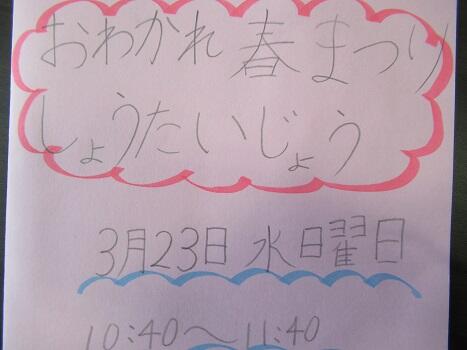 おわかれ 春まつり
しょうたいじょう
3月23日 水曜日
10:40〜11:40